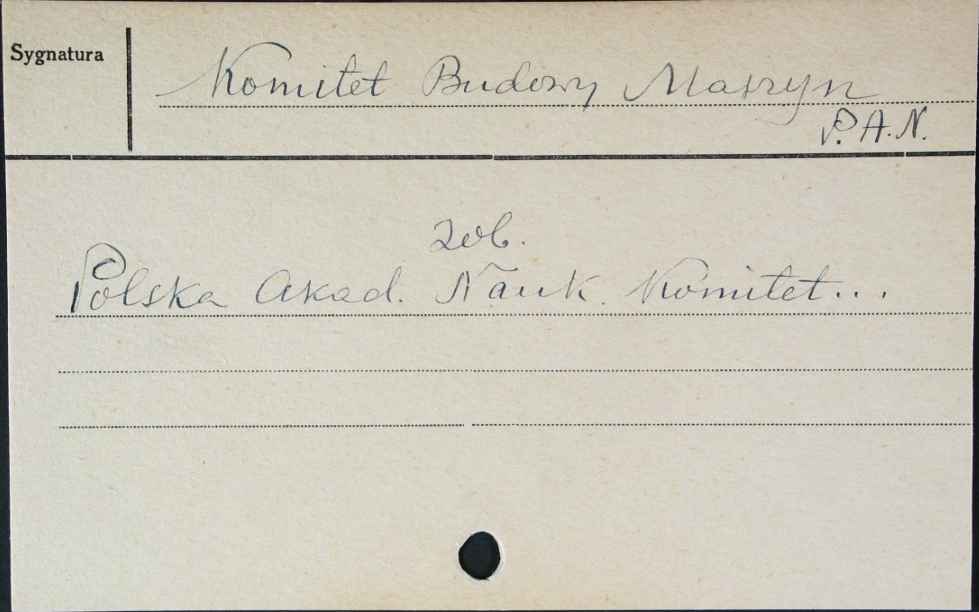 Sygnatura
Komitet Budowy Maszyn
P.A.N.
zob.
Polska Akad. Nauk. Komitet...